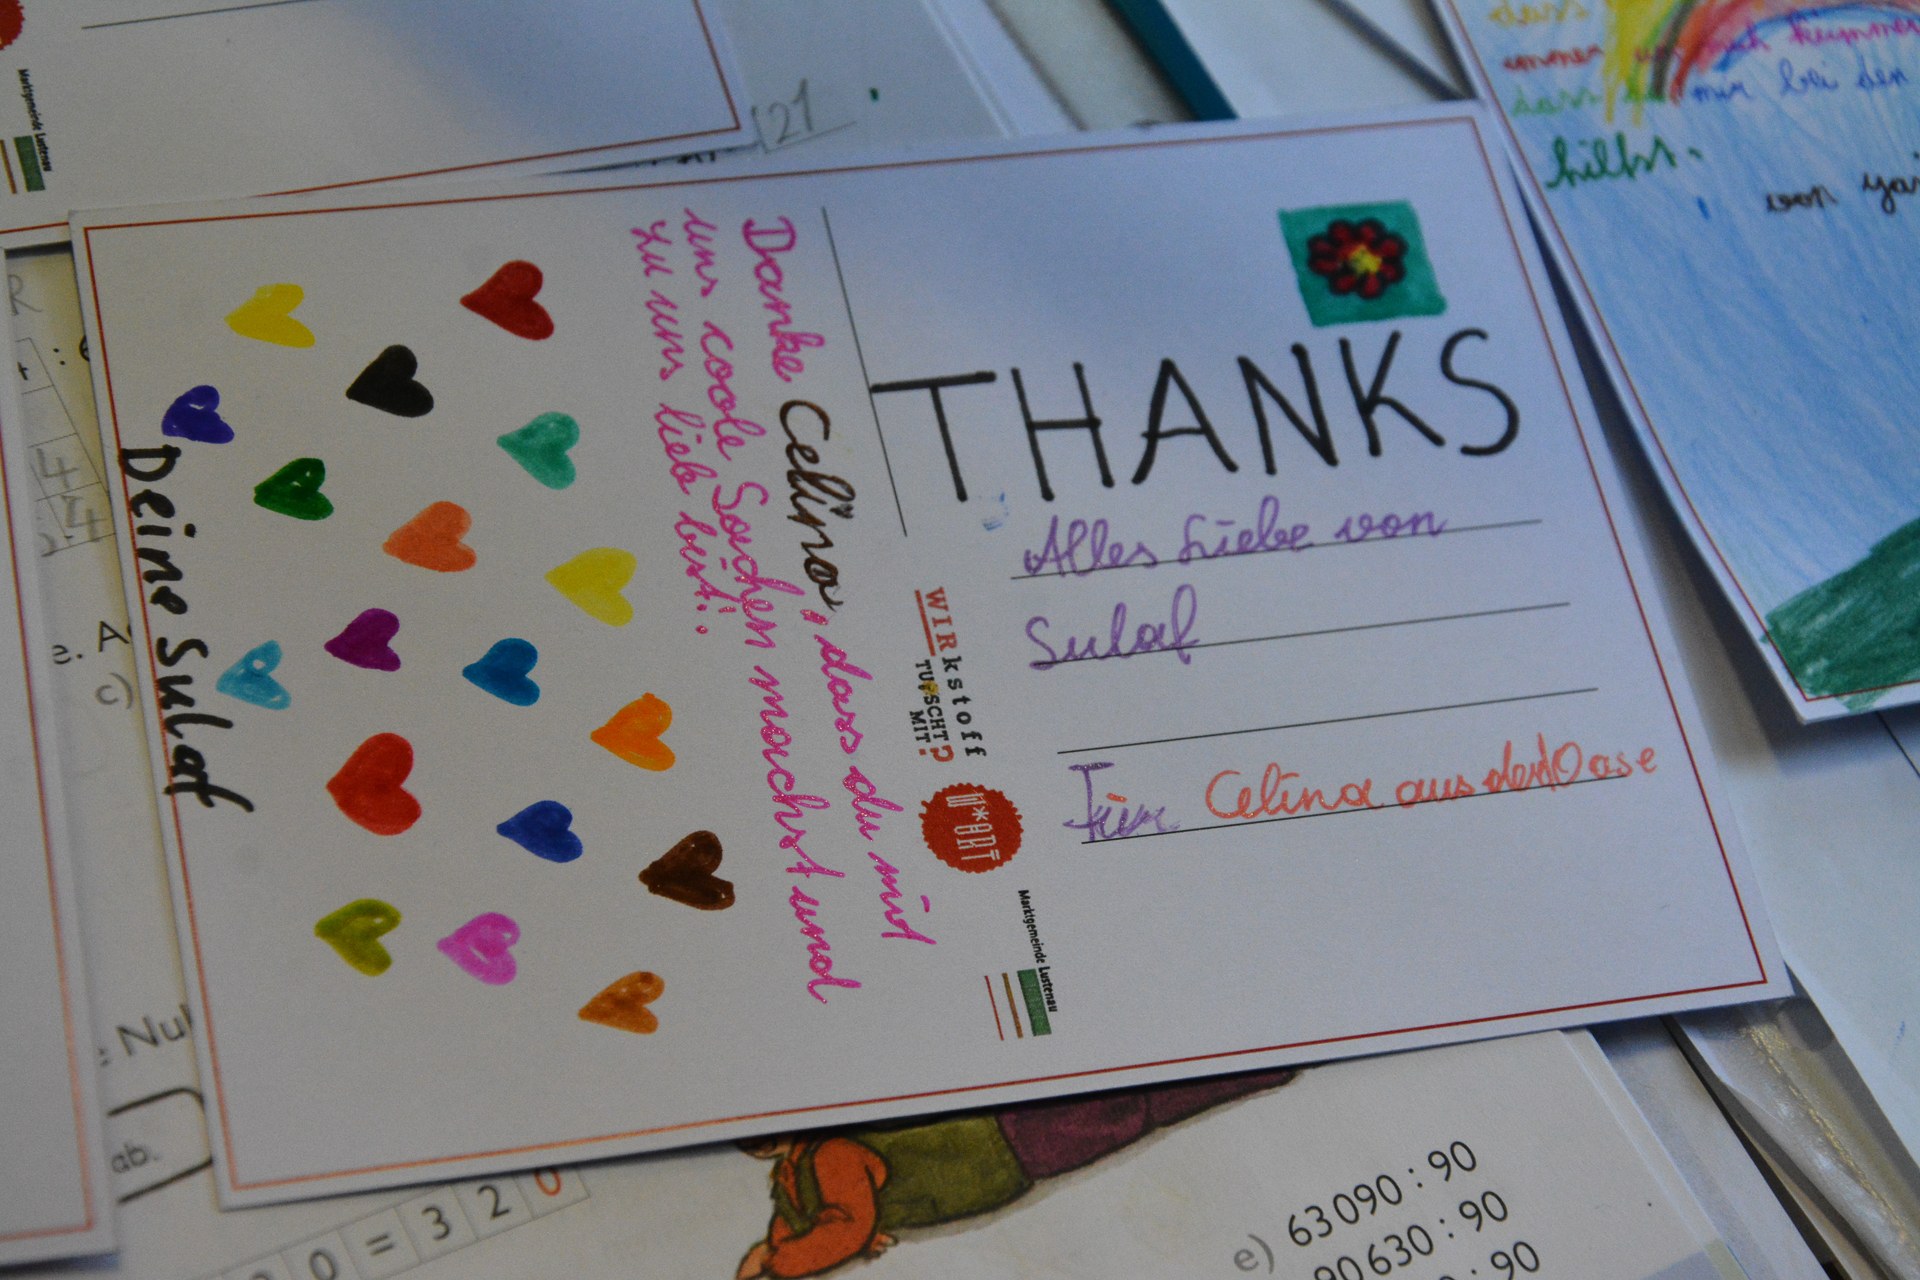 Danke Celina, dass du mit
uns coole Sachen machst und
zu uns lieb bist!
Deine Sulaf
THANKS
Alles Liebe von
Sulaf
Für Celina aus der Oase
WIRkstoff
TUPSCHT
MIT?
W*ART
Marktgemeinde Lustenau
Marktgemeinde Lustenau
21
dass
immer um mich kümmer
dass du mir bei den
hilfst.
von
Nul
ab.
c)
0 = 3 2 0
e) 63090 : 90
90630 : 90
: 90